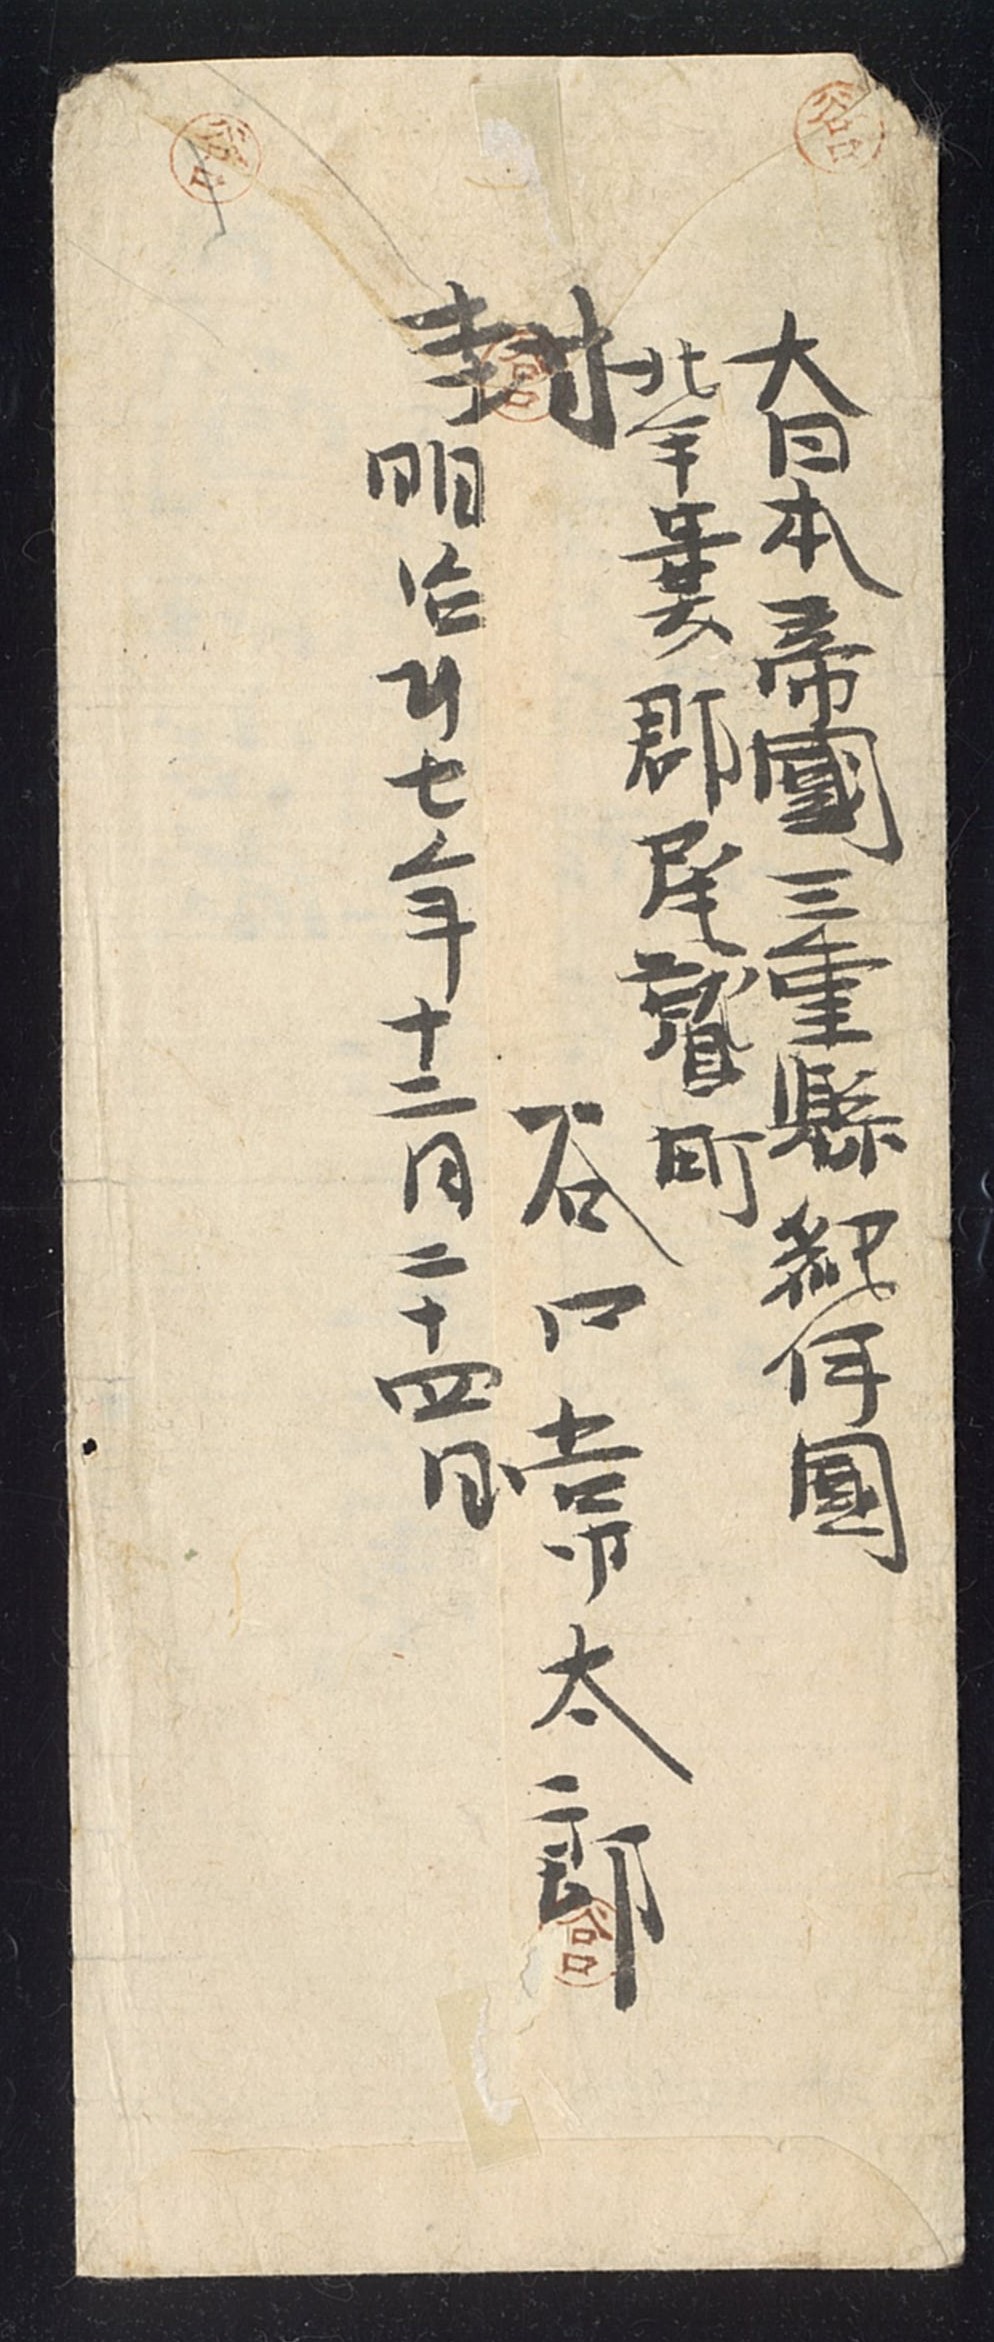 大日本帝國三重縣紀伊國
北牟婁郡尾鷲町
封
谷口幸太郎
明治廿七年十二月二十四日
谷口
谷口
谷口
谷口